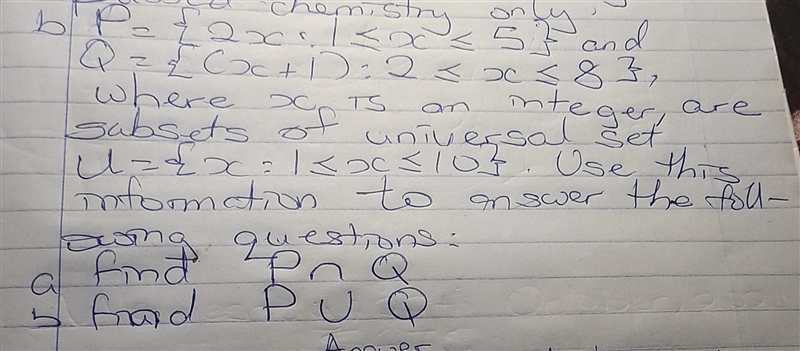 chemistry only,
b P = {2x : 1 ≤ x ≤ 5} and
Q = {(x+1) : 2 ≤ x ≤ 8},
where x, is an integer, are
subsets of universal set
U = {x : 1 ≤ x ≤ 10}. Use this
information to answer the foll-
owing questions:
a find P ∩ Q
b find P ∪ Q
Answer